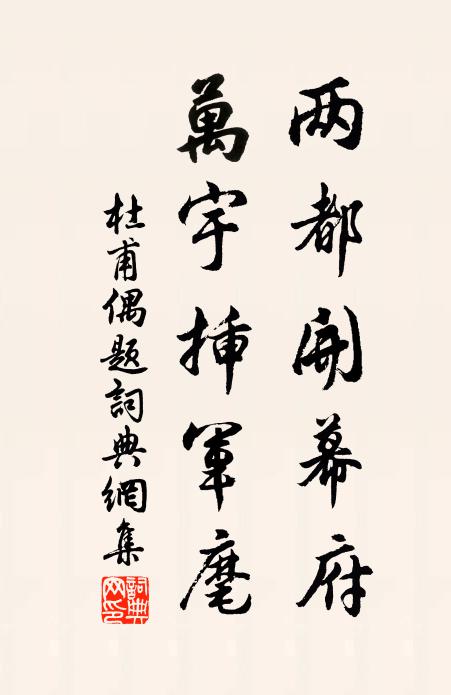 两都開幕府
萬宇插軍麾
杜甫偶題詞典網集
詞典網印